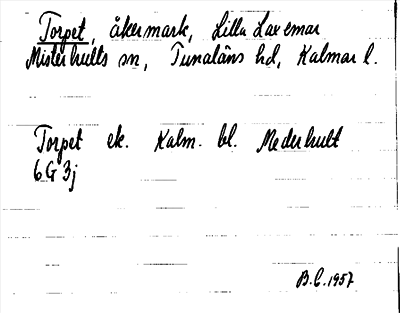 Torpet, åkermark, Lilla Laxemar
Misterhults sn, Tunaläns hd, Kalmar l.
Torpet ek. Kalm. bl. Mederhult
6 G 3j
B.C. 1957